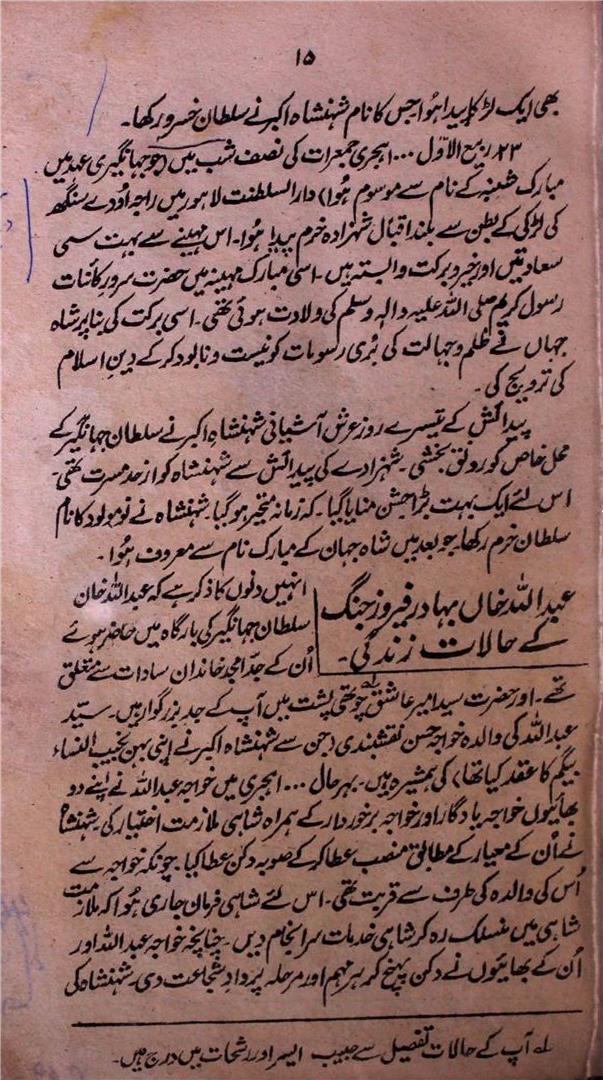 ۱۵
بھی ایک لڑکا پیدا ہوا جس کا نام شہنشاہ اکبر نے سلطان خسرو رکھا۔
۲۳ ربیع الاوّل ۱۰۰۰ ہجری جمعرات کی نصف شب میں (جو جہانگیری عہد میں
مبارک شنبہ کے نام سے موسوم ہوا) دارالسلطنت لاہور میں راجہ اُودے سنگھ
کی لڑکی کے بطن سے بلند اقبال شہزادہ خرم پیدا ہوا۔ اس مہینے سے بہت سی
سعادتیں اور خیر و برکت وابستہ ہیں۔ اسی مبارک مہینہ میں حضرت سرورِ کائنات
رسول کریم صلی اللہ علیہ واٰلہ وسلم کی ولادت ہوئی تھی۔ اسی برکت کی بنا پر شاہ
جہاں نے ظلم و جہالت کی بُری رسومات کو نیست و نابود کر کے دینِ اسلام
کی ترویج کی۔
پیدائش کے تیسرے روز عرش آشیانی شہنشاہ اکبر نے سلطان جہانگیر کے
محل خاص کو رونق بخشی۔ شہزادے کی پیدائش سے شہنشاہ کو ازحد مسرت تھی۔
اس لئے ایک بہت بڑا جشن منایا گیا۔ کہ زمانہ متحیر ہو گیا۔ شہنشاہ نے نومولود کا نام
سلطان خرم رکھا۔ جو بعد میں شاہ جہان کے مبارک نام سے معروف ہوا۔
عبد اللہ خاں بہادر فیروز جنگ
کے حالات زندگی۔
انہیں دنوں کا ذکر ہے کہ عبد اللہ خان
سلطان جہانگیر کی بارگاہ میں حاضر ہوئے
اُن کے جد امجد خاندان سادات سے متعلق
تھے۔ اور حضرت سید امیر عاشق ؂۱ چوتھی پشت میں آپ کے جد بزرگوار ہیں۔ سید
عبد اللہ کی والدہ خواجہ حسن نقشبندی (جن سے شہنشاہ اکبر نے اپنی بہن نجیب النساء
بیگم کا عقد کیا تھا) کی ہمشیرہ ہیں۔ بہر حال ۱۰۰۰ ہجری میں خواجہ عبد اللہ نے اپنے دو
بھائیوں خواجہ یادگار اور خواجہ برخوردار کے ہمراہ شاہی ملازمت اختیار کی۔ شہنشاہ
نے اُن کے معیار کے مطابق منصب عطا کر کے صوبہ دکن عطا کیا۔ چونکہ خواجہ سے
اُس کی والدہ کی طرف سے قربت تھی۔ اس لئے شاہی فرمان جاری ہوا کہ ملازمت
شاہی میں منسلک رہ کر شاہی خدمات سرانجام دیں۔ چنانچہ خواجہ عبد اللہ اور
اُن کے بھائیوں نے دکن پہنچ کر ہر مہم اور مرحلہ پر دادِ شجاعت دی۔ شہنشاہ کی
؂۱ آپ کے حالات تفصیل سے حبیب السیر اور رشحات میں درج ہیں۔